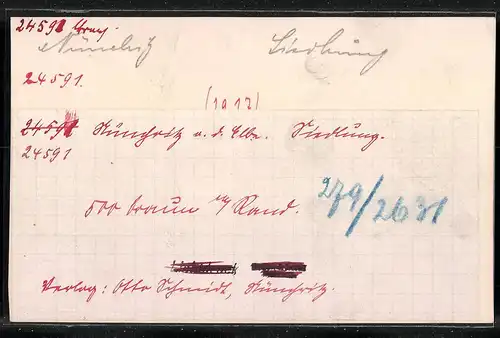 24591
Nünchritz Siedlung
24591.
(1917)
24591 Nünchritz a. d. Elbe. Siedlung.
24591
500 braun m/ Rand. 279/2631
Verlag: Otto Schmidt, Nünchritz.